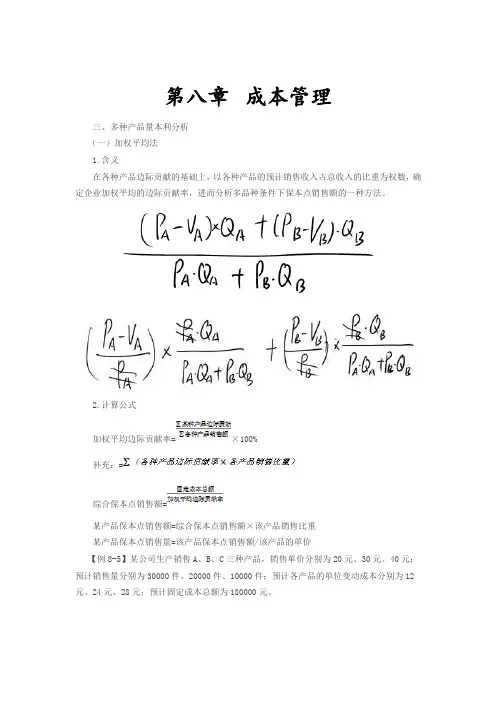 第八章 成本管理
三、多种产品量本利分析
（一）加权平均法
1.含义
在各种产品边际贡献的基础上，以各种产品的预计销售收入占总收入的比重为权数，确
定企业加权平均的边际贡献率，进而分析多品种条件下保本点销售额的一种方法。
(PA-VA)×QA+(PB-VB)·QB
PA·QA+PB·QB
(PA-VA/PA)×PA·QA/PA·QA+PB·QB+(PB-VB/PB)×PB·QB/PA·QA+PB·QB
2.计算公式
加权平均边际贡献率=∑某种产品边际贡献/∑各种产品销售额×100%
补充：=∑（各种产品边际贡献率×各产品销售比重）
综合保本点销售额=固定成本总额/加权平均边际贡献率
某产品保本点销售额=综合保本点销售额×该产品销售比重
某产品保本点销售量=该产品保本点销售额/该产品的单价
【例8-5】某公司生产销售A、B、C三种产品，销售单价分别为20元、30元、40元；
预计销售量分别为30000件、20000件、10000件；预计各产品的单位变动成本分别为12
元、24元、28元；预计固定成本总额为180000元。